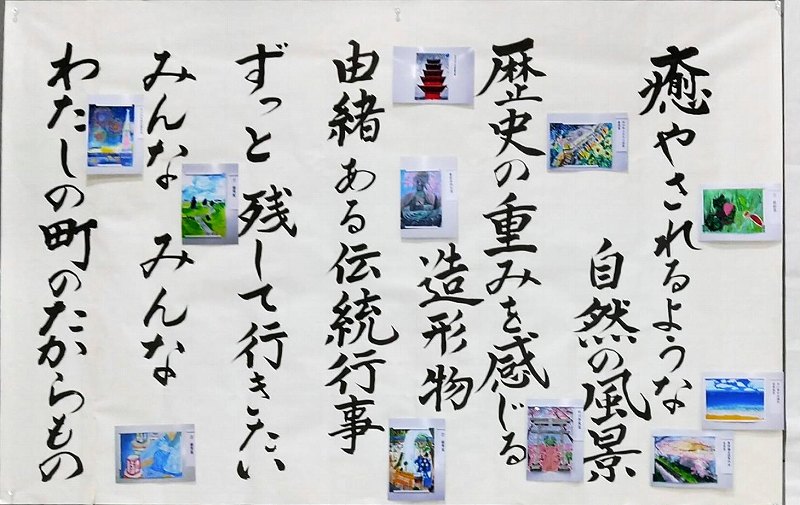 癒やされるような
自然の風景
歴史の重みを感じる
造形物
由緒ある伝統行事
ずっと 残して行きたい
みんな みんな
わたしの町のたからもの